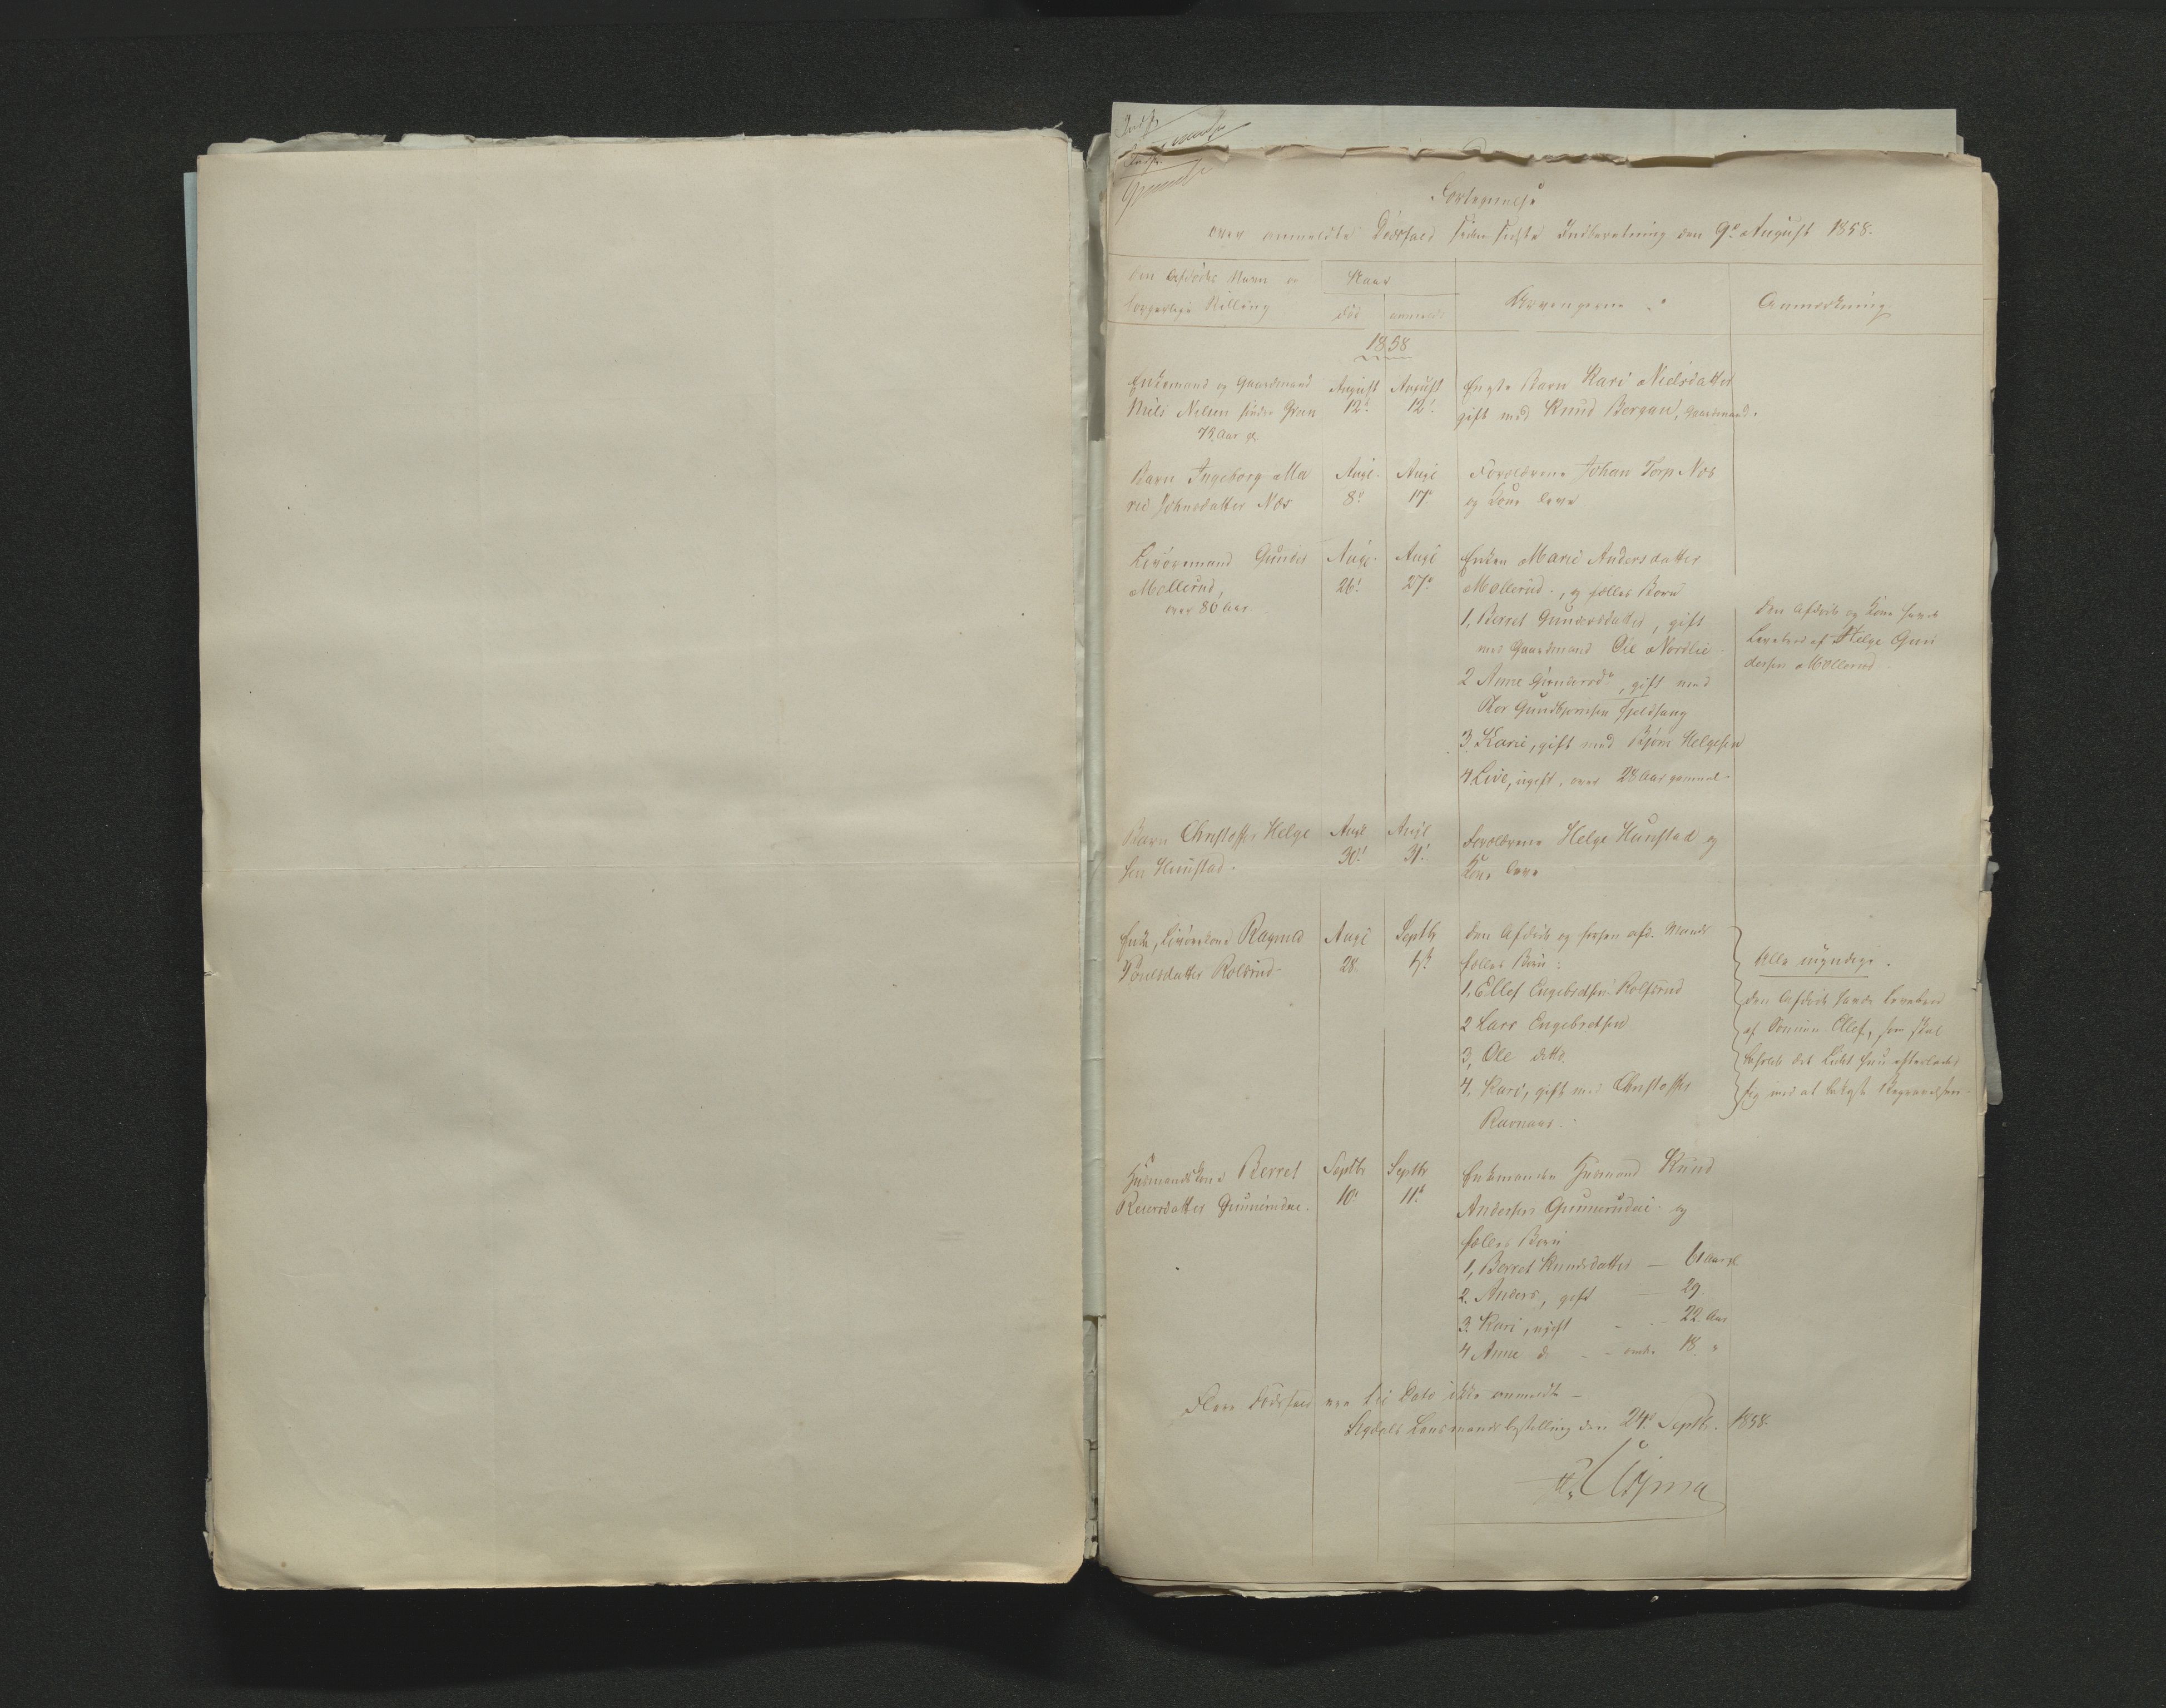 Fortegnelse
over anmeldte Dødsfald siden sidste Indberetning den 9de August 1858.
Den Afdødes Navn og
borgerlige Stilling
Naar
død
anmeldt
Arvingerne
Anmærkning
1858
Enkemand og Gaardmand
Niels Nilsen søndre Gren
75 Aar gl.
August
12te
August
12te
Eneste Barn Kari Nielsdatter
gift med Knud Bergan, Gaardmand.
Barn Ingeborg Ma
rie Johnsdatter Næs
Augt
8de
Augt
17de
Forældrene Johan Torp Næs
og Kone leve
Livøremand Gunder
Møllerud,
over 80 Aar
Augt
26t
Augt
27de
Enken Marie Andersdatter
Møllerud, og fælles Børn
1, Berret Gundersdatter, gift
med Gaardmand Ole Nordlie
2 Anne Gundersdr, gift med
Thor Gundbjørnsen Fjeldhaug
3. Karie, gift med Bjørn Helgesen
4 Live, ugift, over 28 Aar gammel.
Den Afdøde og Kone havde
Levebrød af Helge Gun
dersen Møllerud
Barn Christoffer Helge
sen Hunstad.
Augt
30t
Augt
31t
Forældrene Helge Hunstad og
Kone leve
Enke, Livørekone Ragnild
Rolfsrud
Augt
28
Septbr
Den Afdøde og hendes afd. Mands
fælles Børn:
1, Ellef Engebretsen Rolfsrud
2 Lars Engebretsen
3, Ole ditto
4, Kari, gift med Christoffer
Ravnaas.
Alle myndige.
Den Afdøde havde Levebrød
af Sønnen Ellef, som skal
beholde det Lidet hun efterlader
sig mod at bekoste Begravelsen
Husmandskone Berret
Reiersdatter
Septbr
10de
Septbr
11te
Enkemanden Husmand Knud
Andersen og
fælles Børn
1, Berret Knudsdatter — Aar gl
2. Anders, gift — 29
3. Kari, ugift - - 22 Aar
4 Anne do - - under 18 "
Flere Dødsfald ere til Dato ikke anmeldt —
Sigdals Lensmandsbestilling den 24de Septbr. 1858.